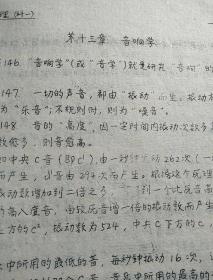 理(卅一)
第十三章 音响学
146. "音响学"(或"音学")就是研究"音响"的
147. 一切的声音，都由"振动"而生。振动
为"乐音"；不规则时，则为"噪音"。
148 音的"高度"，因一定时间内振动次数多
数愈多，则音愈高。
如中央C音(即c¹)，由一秒钟 262次(一
而产生，
由294次而产生。根据这个
振动数增加到二倍之多，
到一个比
的高八度音，由较
音增一倍的振动数而产
上方的c²，振动数为524，中央C下方的C，
乐中所用的最低的音，每秒钟振动16次，
音乐中所用的最高的